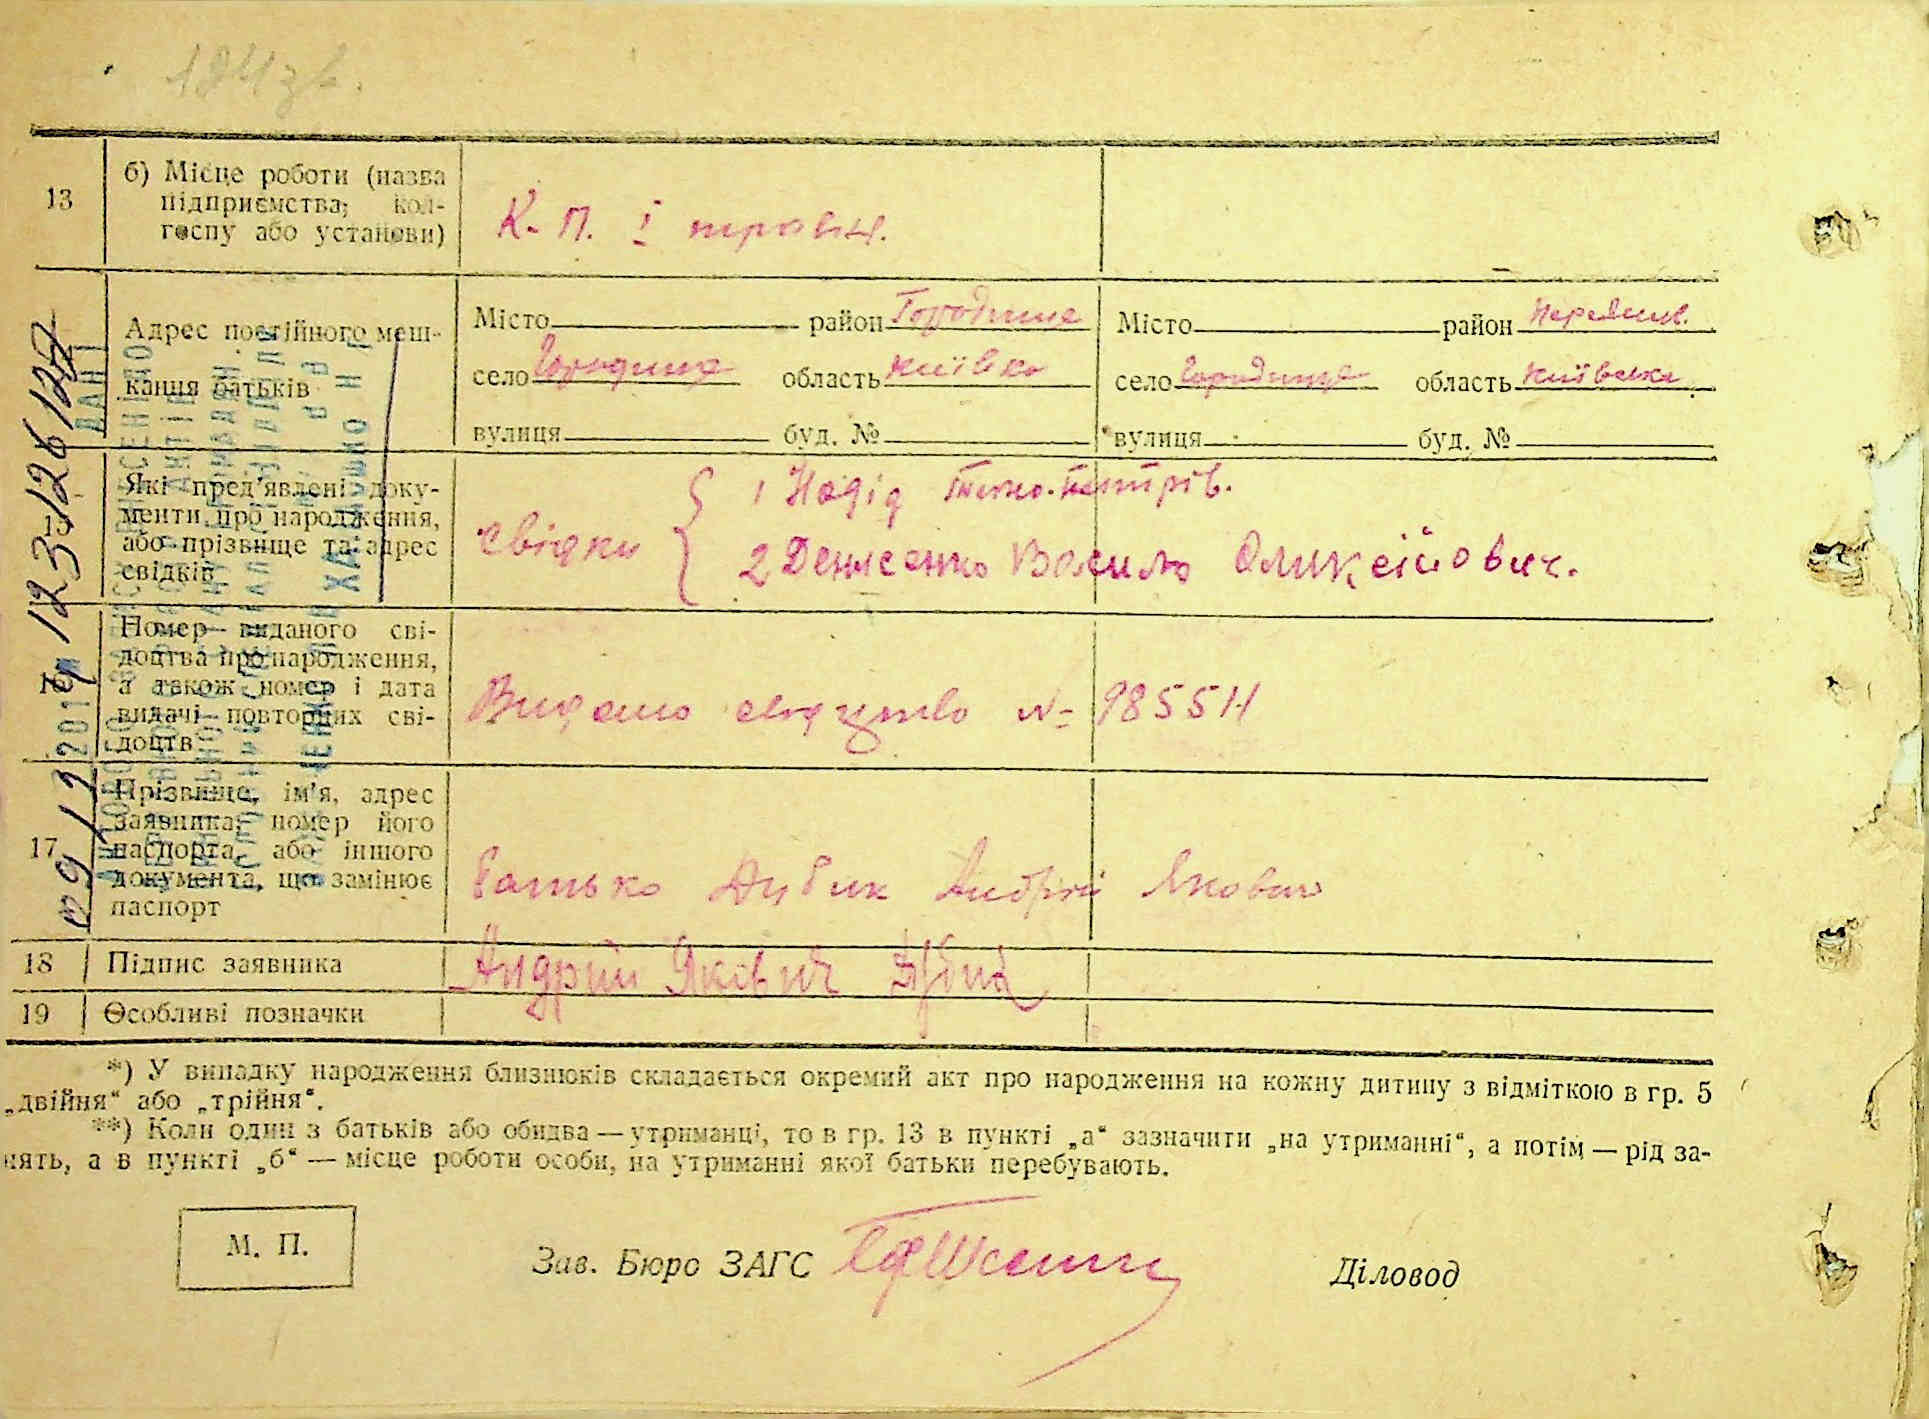 184зв.
13
б) Місце роботи (назва
підприємства; кол-
госпу або установи)
К. П. І травн.
Адрес постійного меш-
кання батьків
Місто район Городище
село Городище область Київсь
вулиця буд. №
Місто район
село Городище область Київська
вулиця буд. №
15
Які пред'явлені доку-
менти про народження,
або прізвище та адрес
свідків
свідки
1
2 Денисенко Василь
16
Номер виданого сві-
доцтва про народження,
а також номер і дата
видачі повторних сві-
доцтв
Видано свідцтво № 98554
17
Прізвище, ім'я, адрес
заявника, номер його
паспорта, або іншого
документа, що замінює
паспорт
Батько Дубик Андрій Якович
18
Підпис заявника
Андрій Яківич
19
Особливі позначки
*) У випадку народження близнюків складається окремий акт про народження на кожну дитину з відміткою в гр. 5
„двійня“ або „трійня“.
**) Коли один з батьків або обидва — утриманці, то в гр. 13 в пункті „а“ зазначити „на утриманні“, а потім — рід за-
нять, а в пункті „б“ — місце роботи особи, на утриманні якої батьки перебувають.
М. П.
Зав. Бюро ЗАГС
Діловод